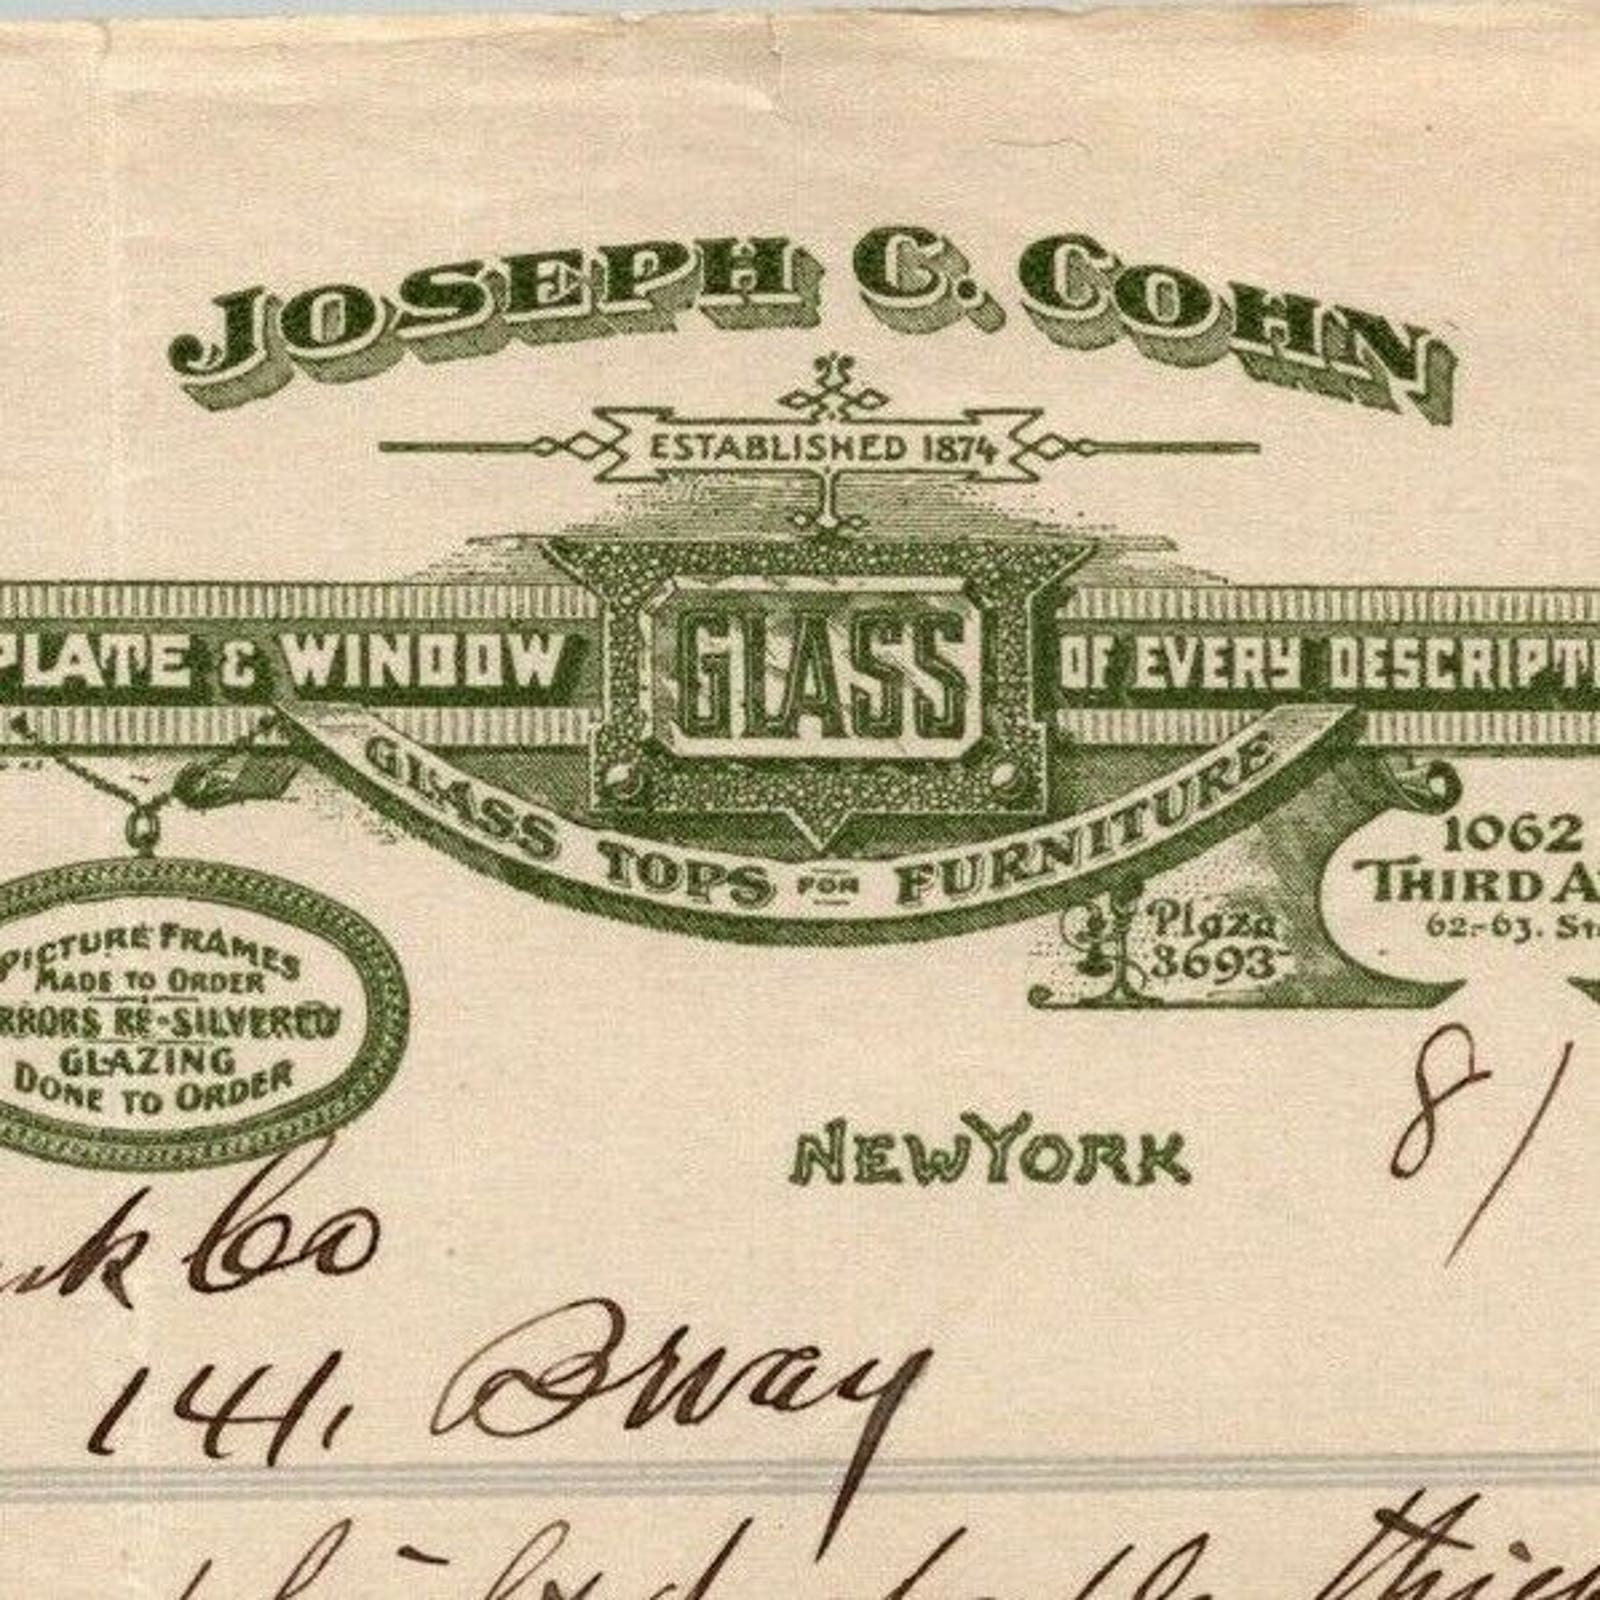 JOSEPH C. COHN
ESTABLISHED 1874
PLATE & WINDOW GLASS OF EVERY DESCRIPTI
GLASS TOPS FOR FURNITURE
1062
THIRD A
62-63. St
Plaza
3693
PICTURE FRAMES
MADE TO ORDER
RRORS RE-SILVERED
GLAZING
DONE TO ORDER
NEW YORK
8/
Co
141. Bway